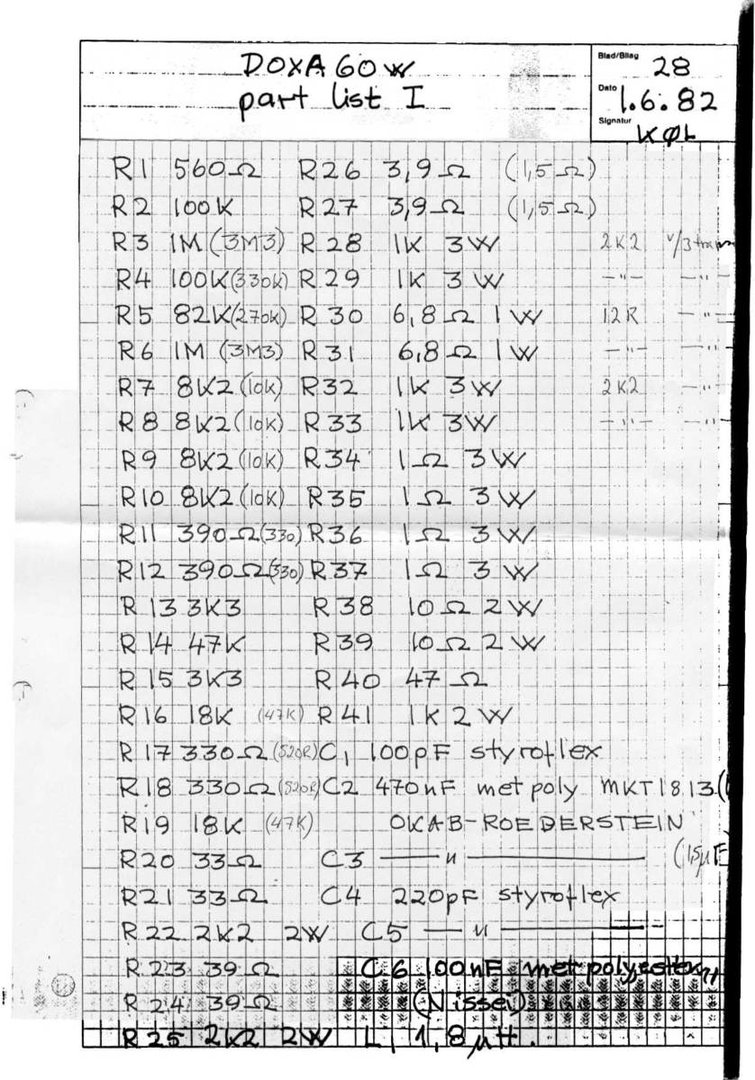 DOXA 60W
part list I
Blad/Bilag
28
Dato
1.6.82
Signatur
KØL
R1 560Ω R26 3,9Ω (1,5Ω)
R2 100K R27 3,9Ω (1,5Ω)
R3 1M (3M3) R28 1K 3W 2K2 v/3
R4 100K (330K) R29 1K 3W —"— —"—
R5 82K (270K) R30 6,8Ω 1W 12R —"—
R6 1M (3M3) R31 6,8Ω 1W —"— —"—
R7 8K2 (10K) R32 1K 3W 2K2 —"—
R8 8K2 (10K) R33 1K 3W —"— —"—
R9 8K2 (10K) R34 1Ω 3W
R10 8K2 (10K) R35 1Ω 3W
R11 390Ω (330) R36 1Ω 3W
R12 390Ω (330) R37 1Ω 3W
R13 3K3 R38 10Ω 2W
R14 47K R39 10Ω 2W
R15 3K3 R40 47Ω
R16 18K (47K) R41 1K 2W
R17 330Ω (520R) C1 100pF styroflex
R18 330Ω (520R) C2 470nF met poly MKT1813 (
R19 18K (47K) OKAB-ROEDERSTEIN
R20 33Ω C3 —"— (1,5µF
R21 33Ω C4 220pF styroflex
R22 2K2 2W C5 —"—
R23 39Ω C6 100nF met polyester,
R24 39Ω (Nissei)
R25 2K2 2W L1 1,8µH.